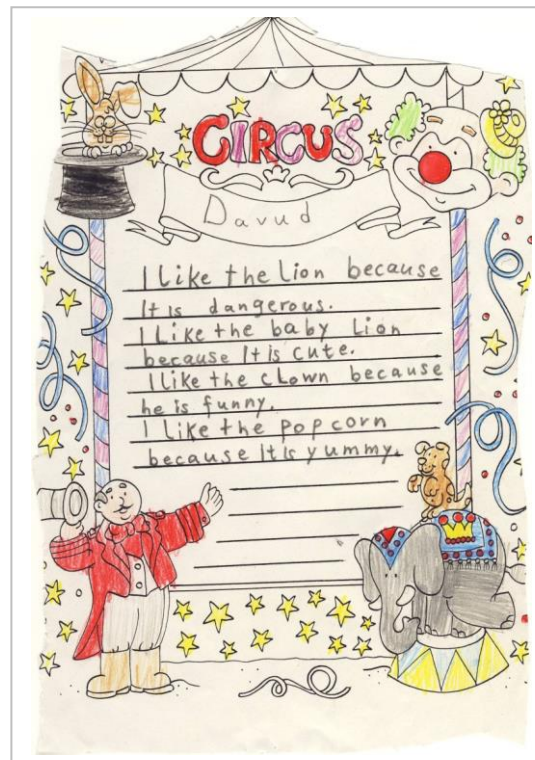 CIRCUS
Davud
I Like the Lion because
It is dangerous.
I Like the baby Lion
because It is cute.
I Like the cLown because
he is funny.
I Like the popcorn
because It is yummy.